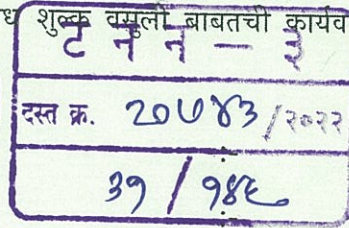 ध शुल्क वसुली बाबतची कार्यव
ट न न - ३
दस्त क्र. २०७४३ /२०२२
३१ / १४६